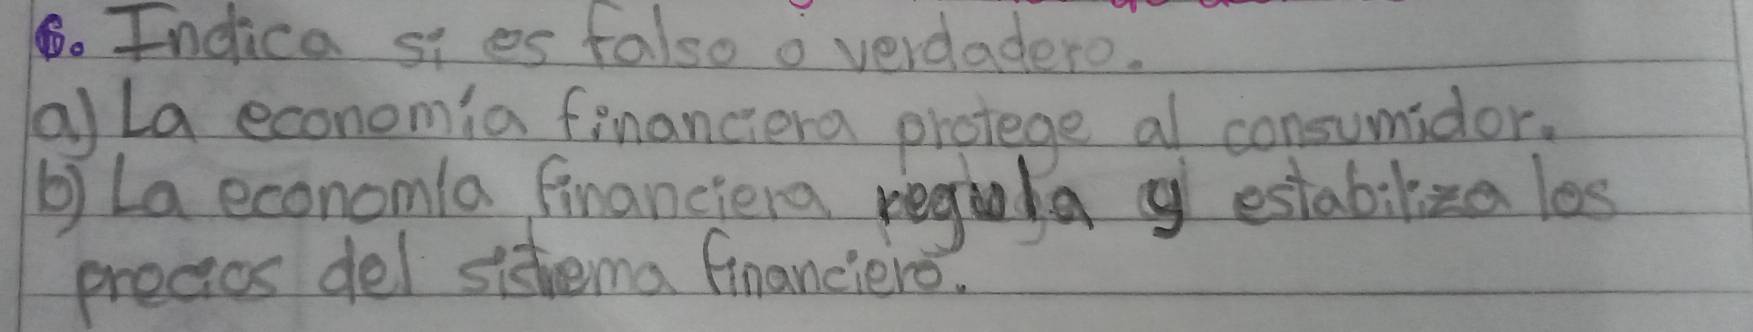 6. Indica si es falso o verdadero.
a) La economía financiera protege al consumidor.
b) La economía financiera regula y estabiliza los
precios del sistema financiero.